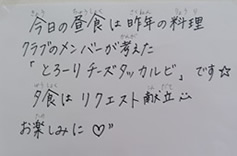 今日の昼食は昨年の料理
クラブのメンバーが考えた
「とろーりチーズタッカルビ」です☆
夕食はリクエスト献立
お楽しみに♡"